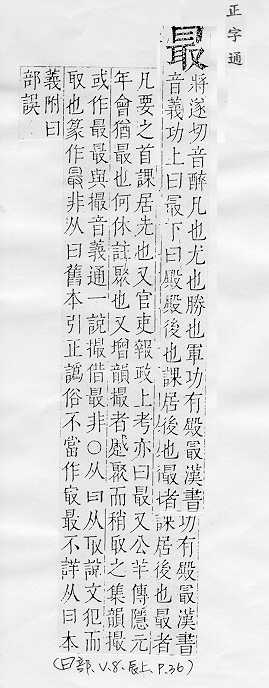 正字通
最
將遂切音醉凡也尤也勝也軍功有殿最漢書功有殿最漢書
音義功上曰最下曰殿殿後也課居後也最者課居後也最者
凡要之首課居先也又官吏報政上考亦曰最又公羊傳隱元
年會猶最也何休註聚也又增韻撮者蹙聚而稍取之集韻撮
或作最最與撮音義通一說撮借最非○从曰从取說文犯而
取也篆作最非从曰舊本引正譌俗不當作㝡最不詳从曰本
義附曰
部誤
(曰部、V.8、辰上、P.36)